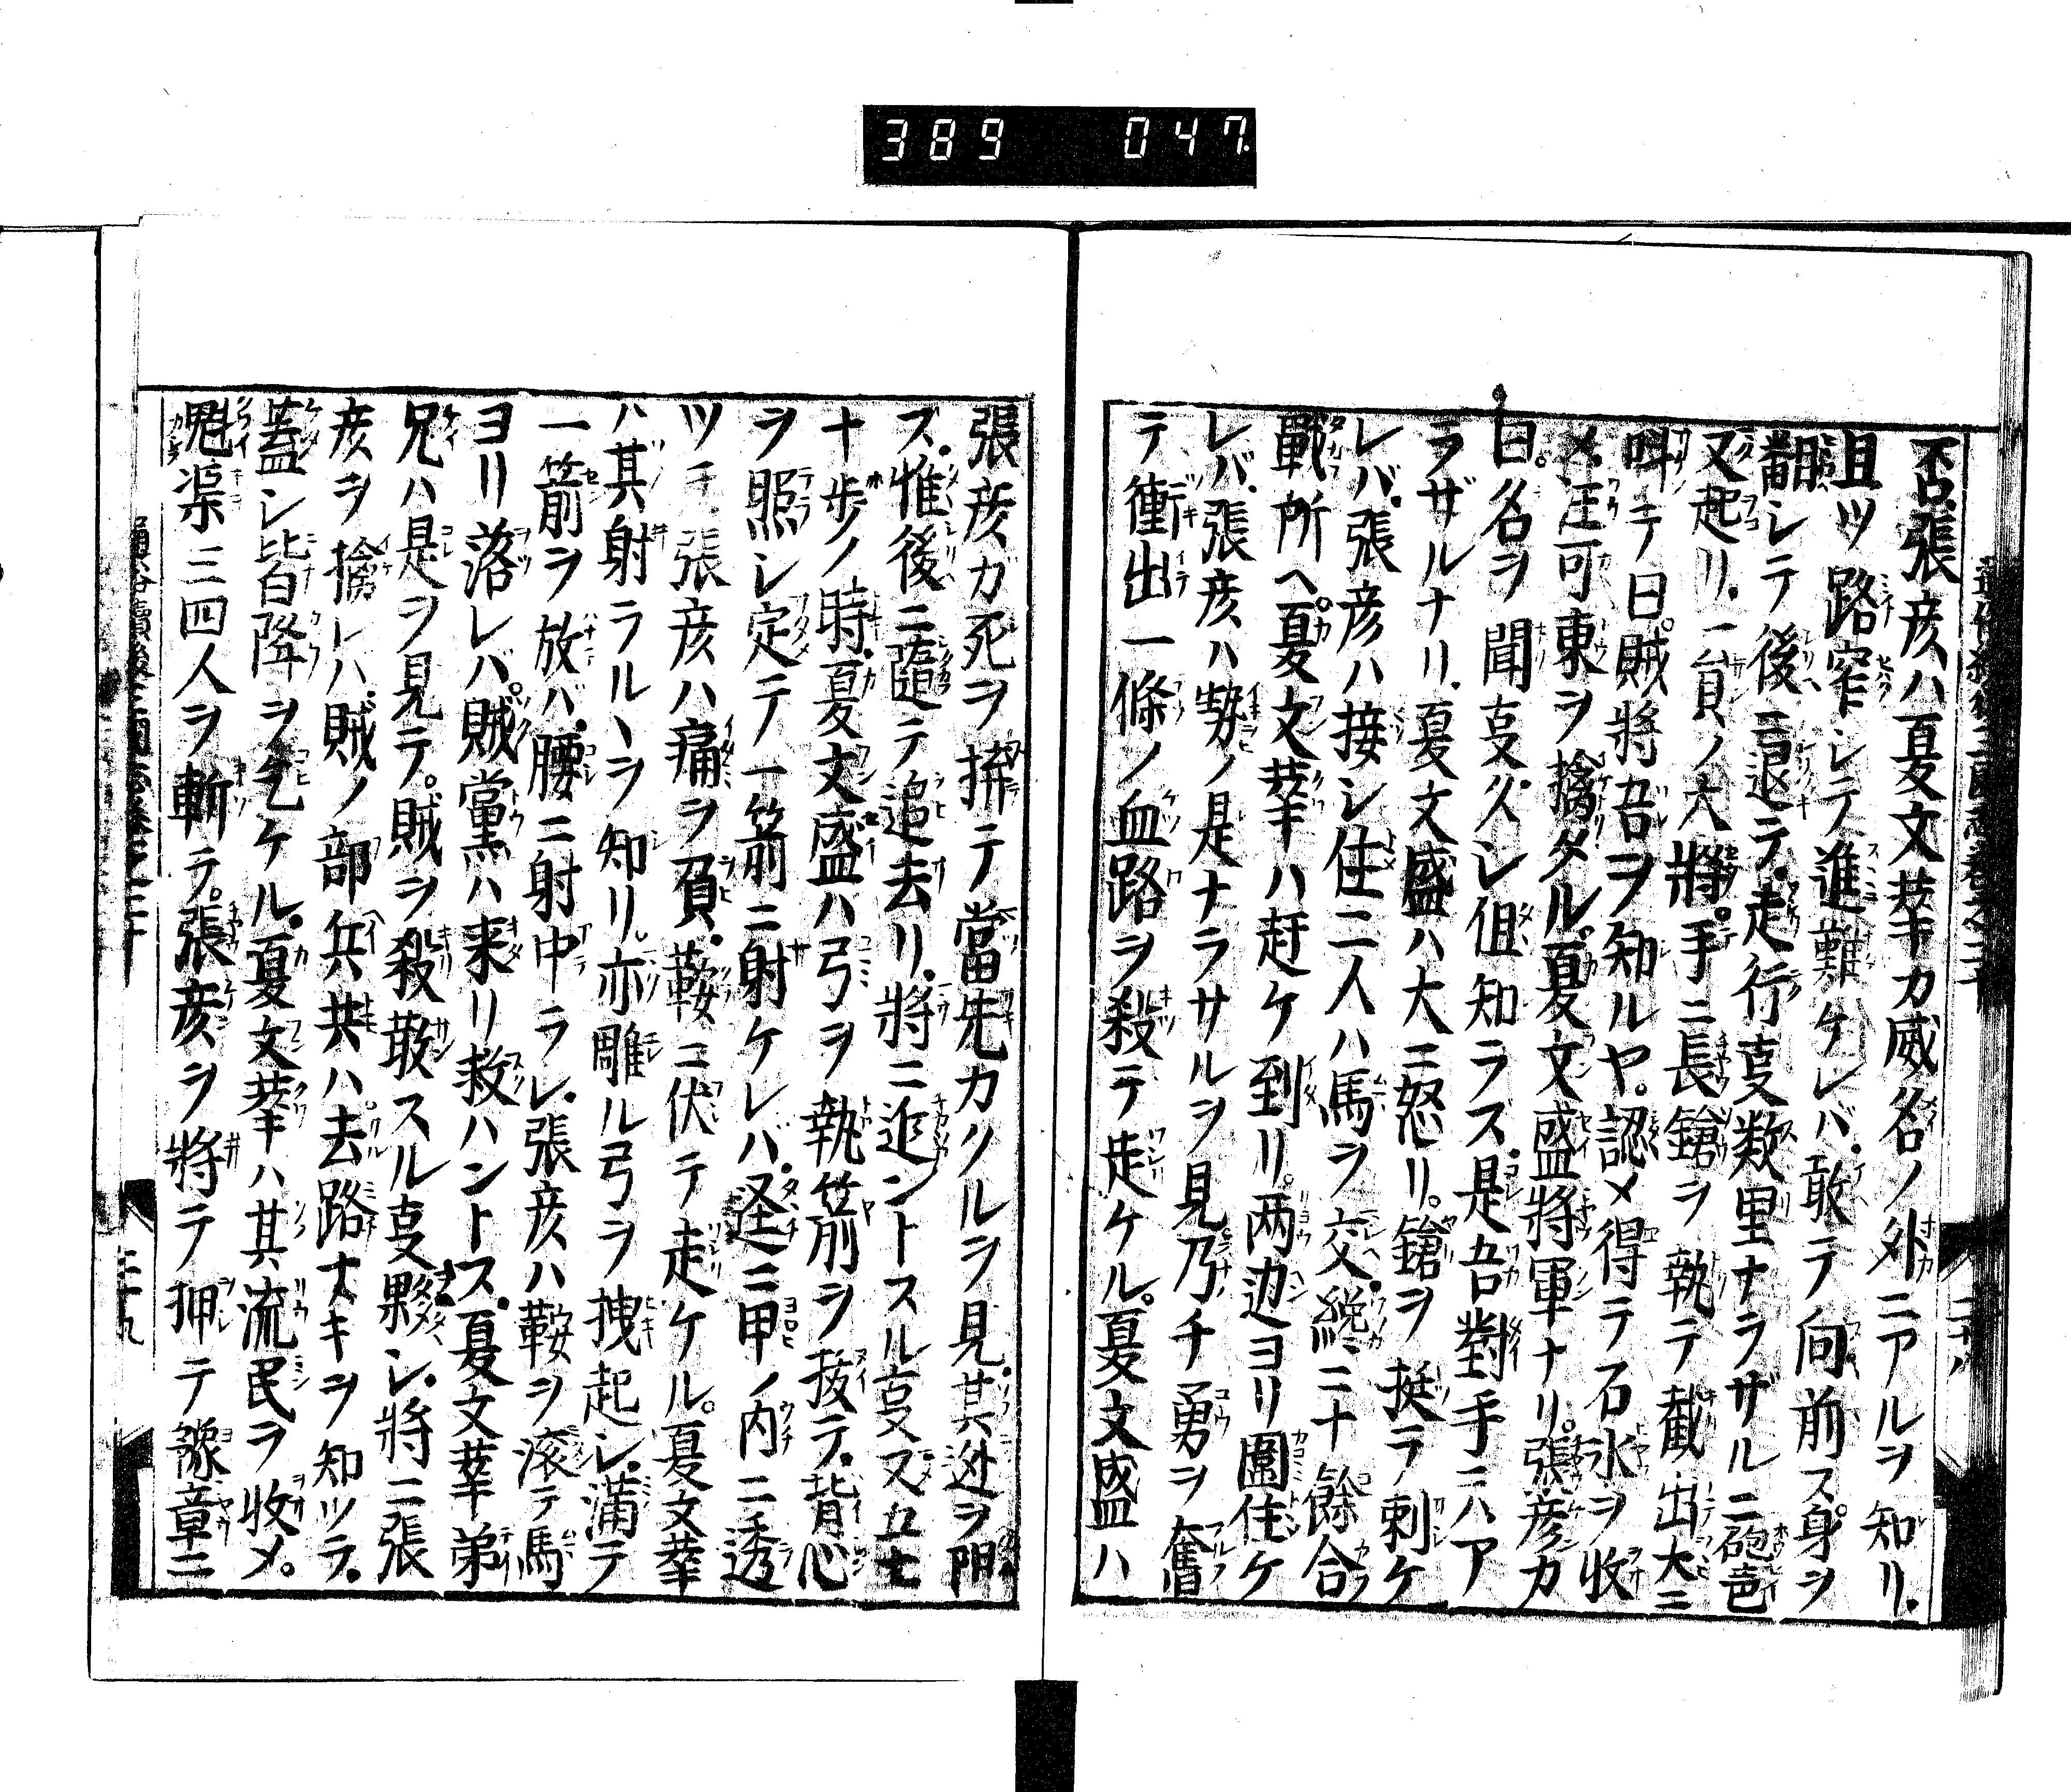 389 047.
否張彦ハ夏文莘カ威名ノ外ニアルヲ知リ.
且ツ路窄シテ進難ケレバ.敢テ向前ス身ヲ
翻シテ後ニ退テ.走行㕝数里ナラザルニ砲㐯
又起リ.一員ノ大將.手ニ長鎗ヲ執テ截出大ニ
呌テ曰賊將吾ヲ知ルヤ.認メ得テ石氷ヲ收
メ.汪可東ヲ擒タル.夏文盛將軍ナリ.張彦カ
曰.名ヲ聞㕝久シ但知ラズ.是吾對手ニハア
ラザルナリ.夏文盛ハ大ニ怒リ.鎗ヲ挺テ刺ケ
レバ.張彦ハ接シ住二人ハ馬ヲ交纔ニ十餘合
戰所ヘ.夏文莘ハ赶ケ到リ.两边ヨリ圍住ケ
レバ.張彦ハ勢ノ是ナラサルヲ見乃チ勇ヲ奮
テ衝出一條ノ血路ヲ殺テ走ケル.夏文盛ハ
張彦ガ死ヲ拚テ當先カノルヲ見.其迯ヲ門
ズ.惟後ニ隨テ追去リ.將ニ近ントスル㕝又五七
十歩ノ時.夏文盛ハ弓ヲ執箭ヲ拔テ.背心
ヲ照シ定テ一箭ニ射ケレバ.逕ニ甲ノ内ニ透
ツテ張彦ハ痛ヲ負.鞍ニ伏テ走ケル.夏文莘
ハ其射ラルヽヲ知リ.亦雕ル弓ヲ拽起シ.滿テ
一箭ヲ放バ.腰ニ射中ラレ.張彦ハ鞍ヲ滚テ馬
ヨリ落レバ.賊黨ハ来リ救ハントス.夏文莘弟
兄ハ是ヲ見テ.賊ヲ殺散スル㕝夥シ.將ニ張
彦ヲ擒レハ.賊ノ部兵共ハ去路ナキヲ知ツテ.
蓋シ皆降ヲ乞ケル.夏文莘ハ其流民ヲ收メ.
魁渠三四人ヲ斬テ.張彦ヲ將テ押テ豫章ニ